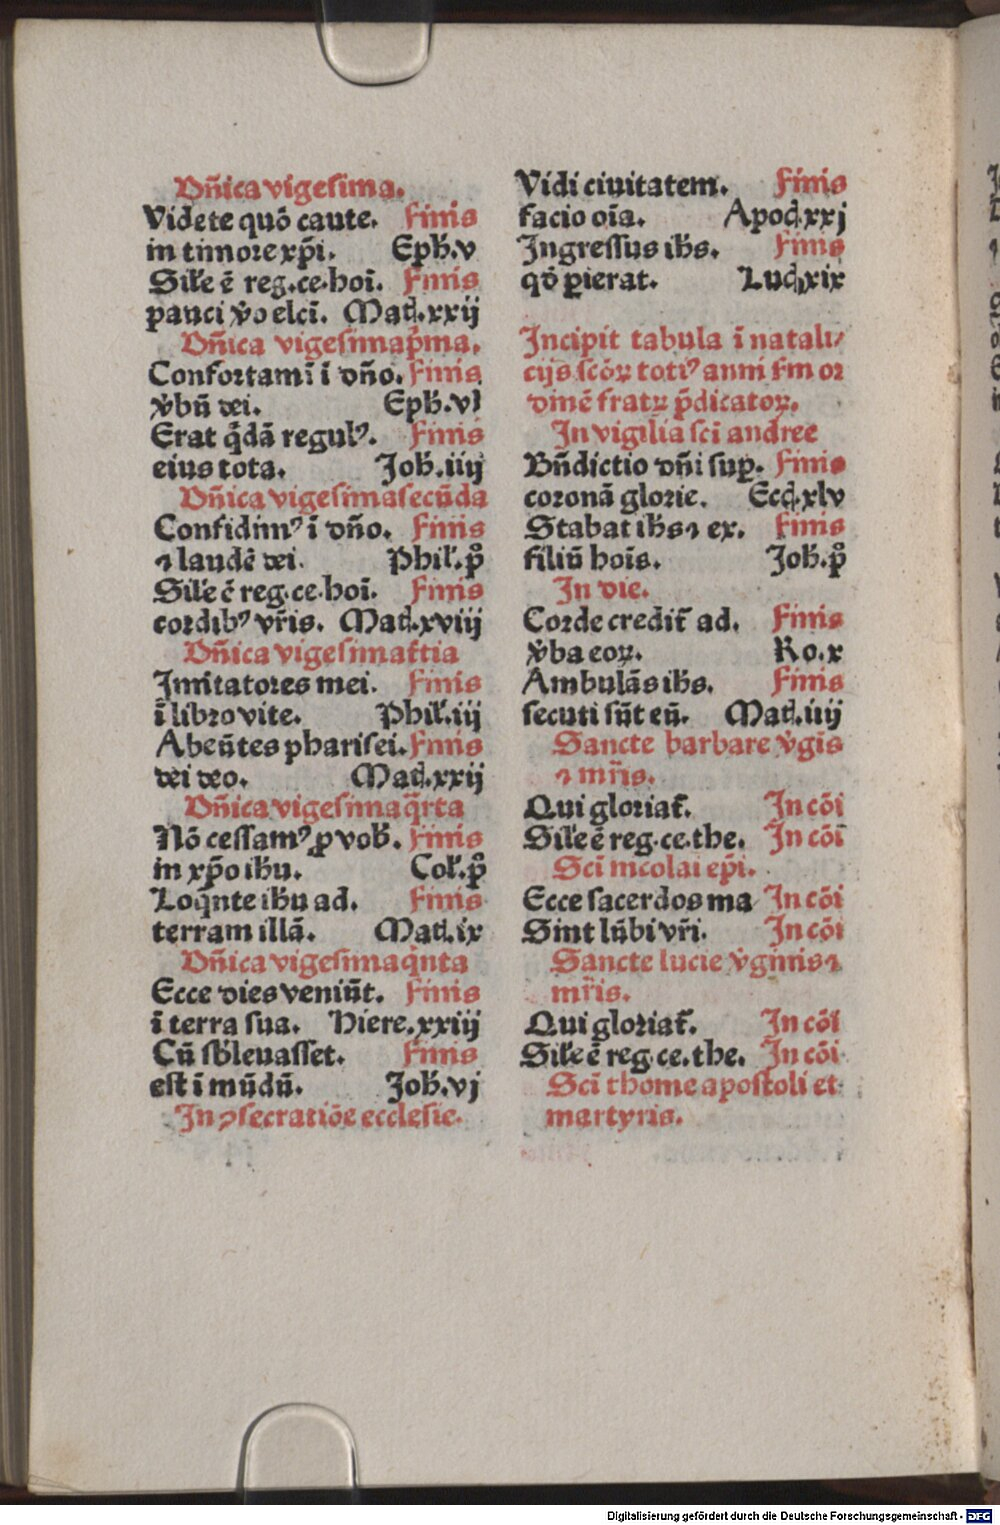 Dñica vigesima.
Videte quō caute. Finis
in timore xp̄i. Eph̄.v
Sil̄e ē reg.ce.hoī. Finis
pauci v̾o elcī. Mat̄.xxij
Dñica vigesimap̄ma.
Confortamī ī dño. Finis
v̾bū dei. Eph̄.vl
Erat q̄dā regulꝰ. Finis
eius tota. Joh̄.iiij
Dñica vigesimasecūda
Confidimꝰ ī dño. Finis
⁊ laudē dei. Phil̄.p̊
Sil̄e ē reg.ce.hoī. Finis
cordibꝰ vr̄is. Mat̄.xviij
Dñica vigesimat̄tia
Imitatores mei. Finis
ī libro vite. Phil̄.iij
Abeūtes pharisei. Finis
dei deo. Mat̄.xxij
Dñica vigesimaq̄rta
Nō cessamꝰ ꝓ vob̄. Finis
in xp̄o ihū. Col̄.p̊
Loq̄nte ihū ad. Finis
terram illā. Mat̄.ix
Dñica vigesimaq̇nta
Ecce dies veniūt. Finis
ī terra sua. Hiere.xxiij
Cū sb̄leuasset. Finis
est ī mūdū. Joh̄.vj
In ꝯsecratiōe ecclesie.
Vidi ciuitatem. Finis
facio oīa. Apoc̄.xxj
Ingressus ih̄s. Finis
qd̄ ꝑierat. Luc̄.xix
Incipit tabula ī natali⸗
cijs scōꝝ totiꝰ anni s̄m or
dinē fratꝝ p̄dicatoꝝ.
In vigilia sc̄i andree
Bñdictio dñi suꝑ. Finis
coronā glorie. Ecc̄.xlv
Stabat ih̄s ⁊ ex. Finis
filiū hoīs. Joh̄.p̊
In die.
Corde credit̄ ad. Finis
v̾ba eoꝝ. Ro.x
Ambulās ih̄s. Finis
secuti sūt eū. Mat̄.iiij
Sancte barbare v̾gis
⁊ mr̄is.
Qui gloriat̄. In cōi
Sil̄e ē reg.ce.the. In cōi
Sc̄i nicolai ep̄i.
Ecce sacerdos ma In cōi
Sint lūbi vr̄i. In cōi
Sancte lucie v̾ginis ⁊
mr̄is.
Qui gloriat̄. In cōi
Sil̄e ē reg.ce.the. In cōi
Sc̄i thome apostoli et
martyris.
Digitalisierung gefördert durch die Deutsche Forschungsgemeinschaft - DFG